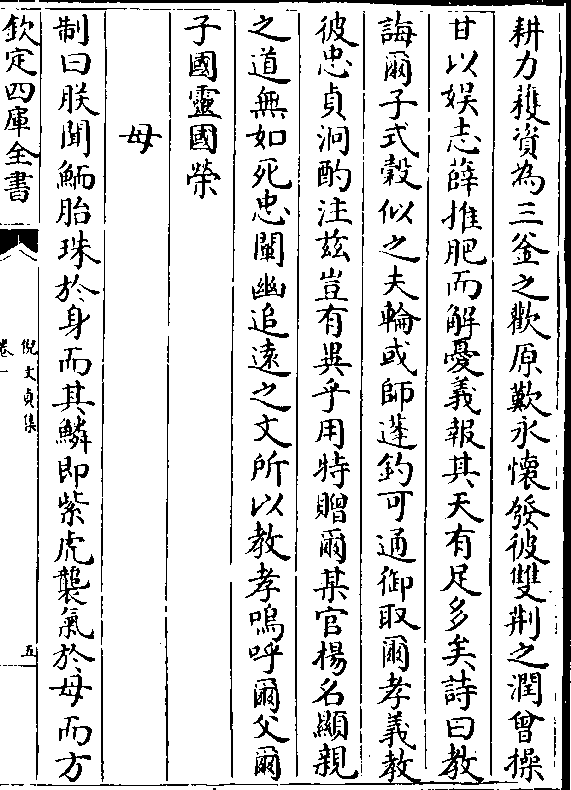 耕力穫資為三釜之歡原歎永懷發彼雙荆之潤曾操
甘以娱志薛推肥而解憂義報其天有足多矣詩曰教
誨爾子式穀似之夫輪或師蓬釣可通御取爾孝義教
彼忠貞泂酌注兹豈有異乎用特贈爾某官楊名顯親
之道無如死忠闡幽追遠之文所以教孝嗚呼爾父爾
子國靈國榮
母
制曰朕聞鮞胎珠於身而其鱗即紫虎襲氣於母而方
欽定四庫全書
倪文貞集
卷一
五